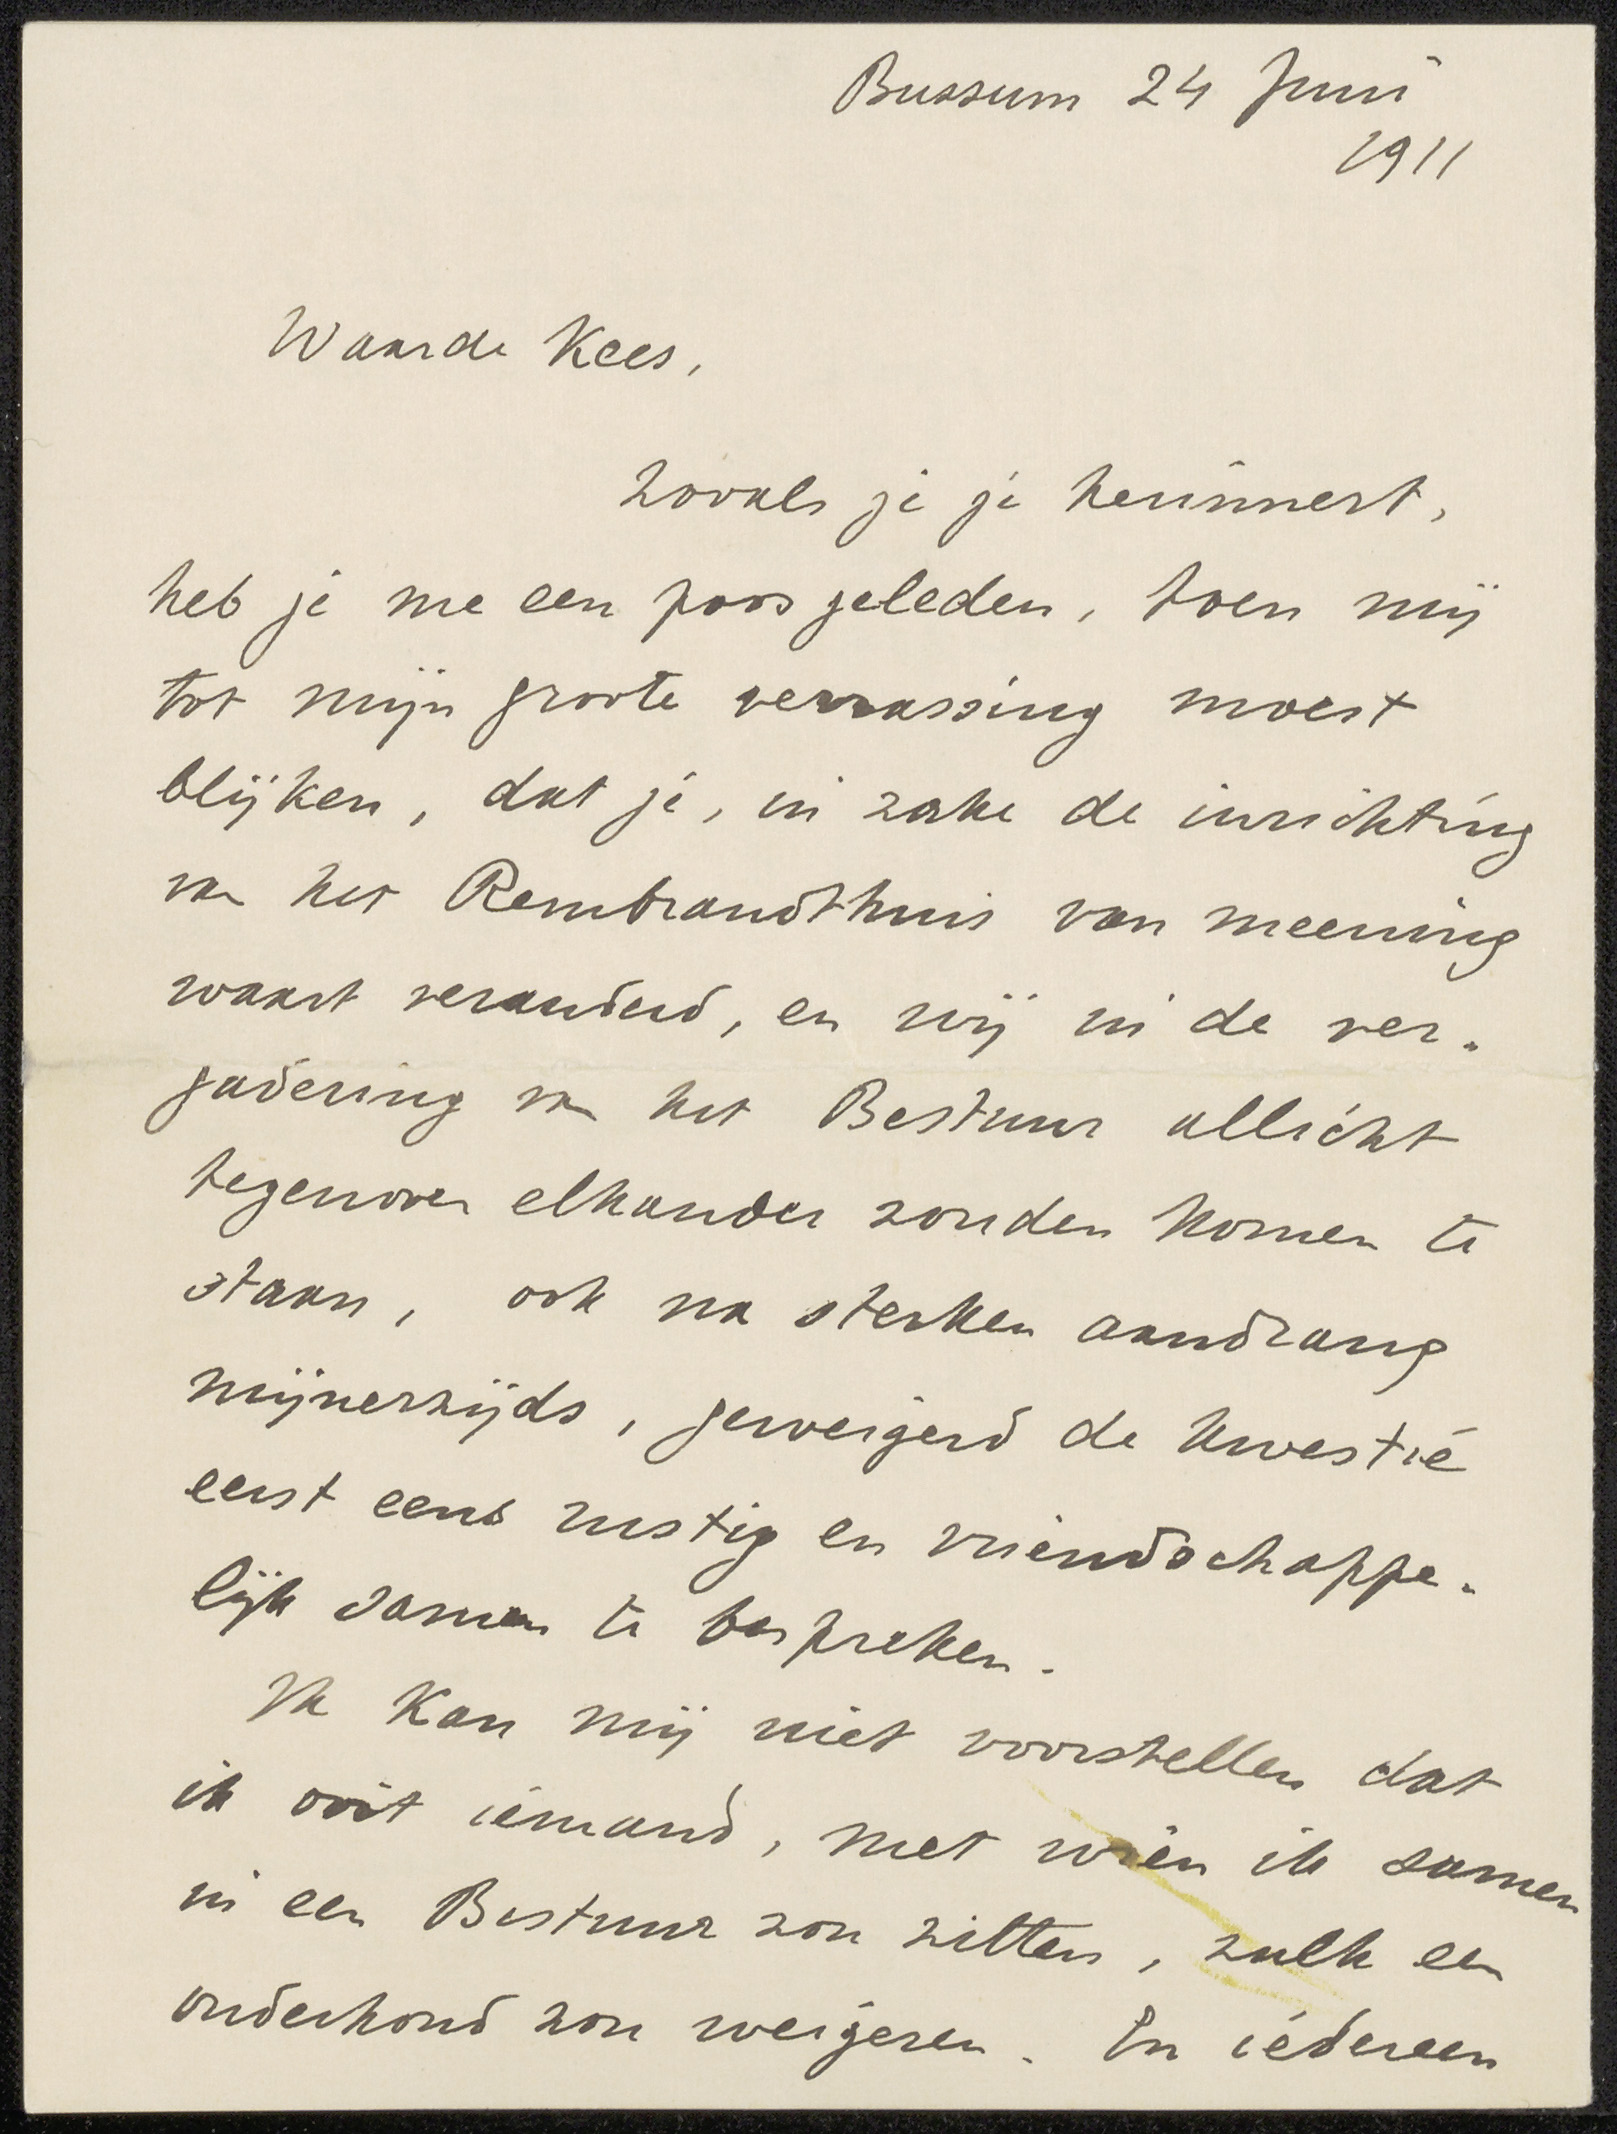 Bussum 24 Juni
1911
Waarde Kees,
zooals je je herinnert,
heb je me een poos geleden, toen mij
tot mijn groote verrassing moest
blijken, dat je, in zake de inrichting
van het Rembrandthuis van meening
waart veranderd, en wij in de ver-
gadering van het Bestuur allicht
tegenover elkander zouden komen te
staan, ook na sterken aandrang
mijnerzijds, geweigerd de kwestie
eerst eens rustig en vriendschappe-
lijk samen te bespreken.
Ik kan mij niet voorstellen dat
ik ooit iemand, met wien ik samen
in een Bestuur zou zitten, zulk een
onderhoud zou weigeren. En iedereen